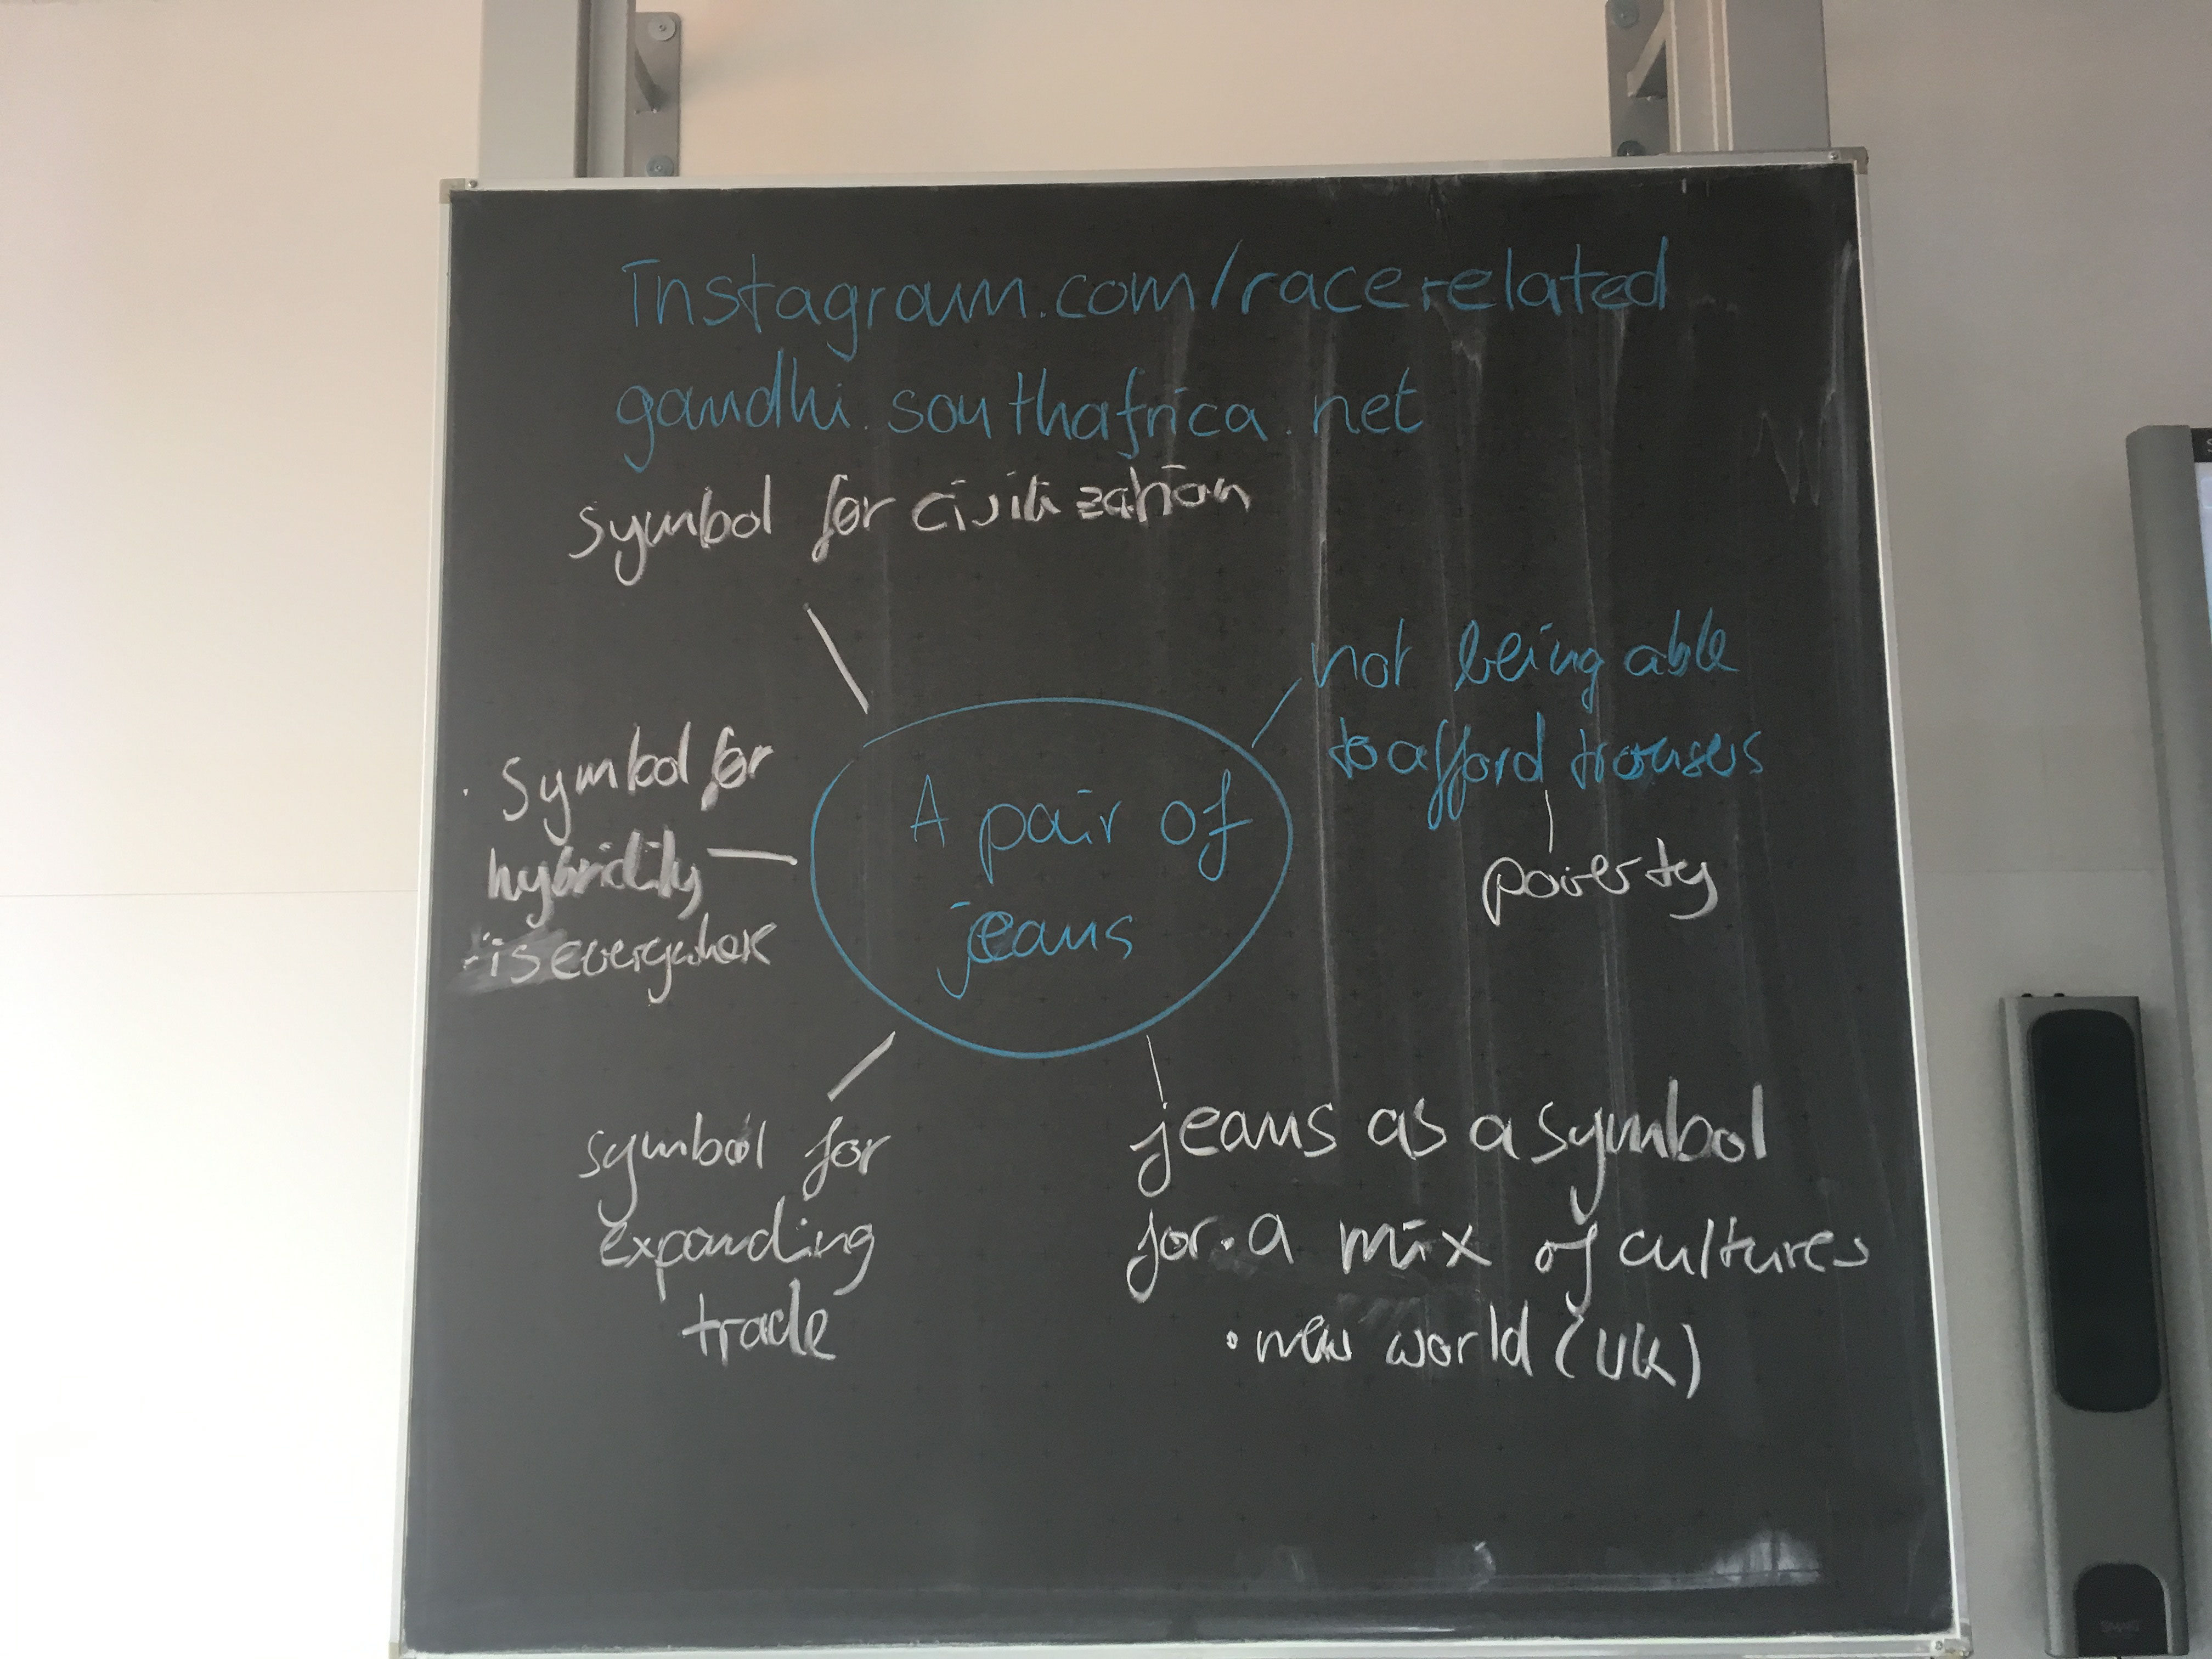 Instagram.com/racerelated
gandhi.southafrica.net
symbol for civilization
not being able
to afford trousers
poverty
· Symbol for
hybridity
- is everywhere
A pair of
jeans
symbol for
expanding
trade
jeans as a symbol
for a mix of cultures
• new world (UK)